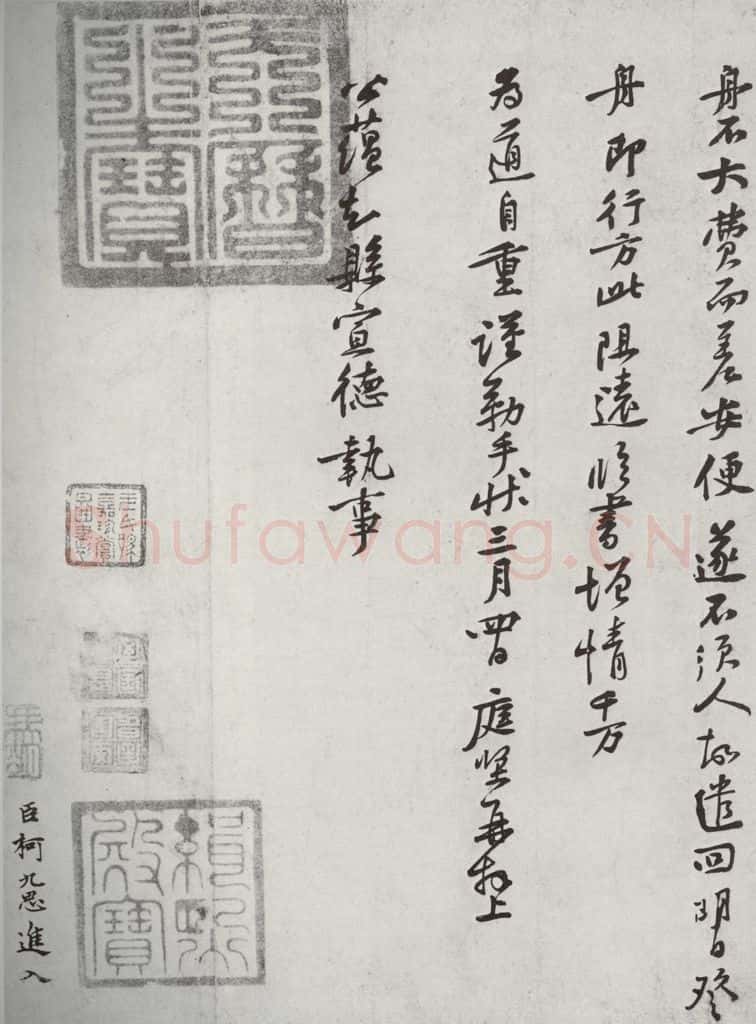 舟不大費而差安便遂不須人故遣回明日發
舟即行方此阻遠臨書增情千万
為道自重謹勒手狀三月四日庭堅再拜上
公蘊知縣宣德執事
天曆之寶
緝熙殿寶
臣柯九思進入
shufawang.CN